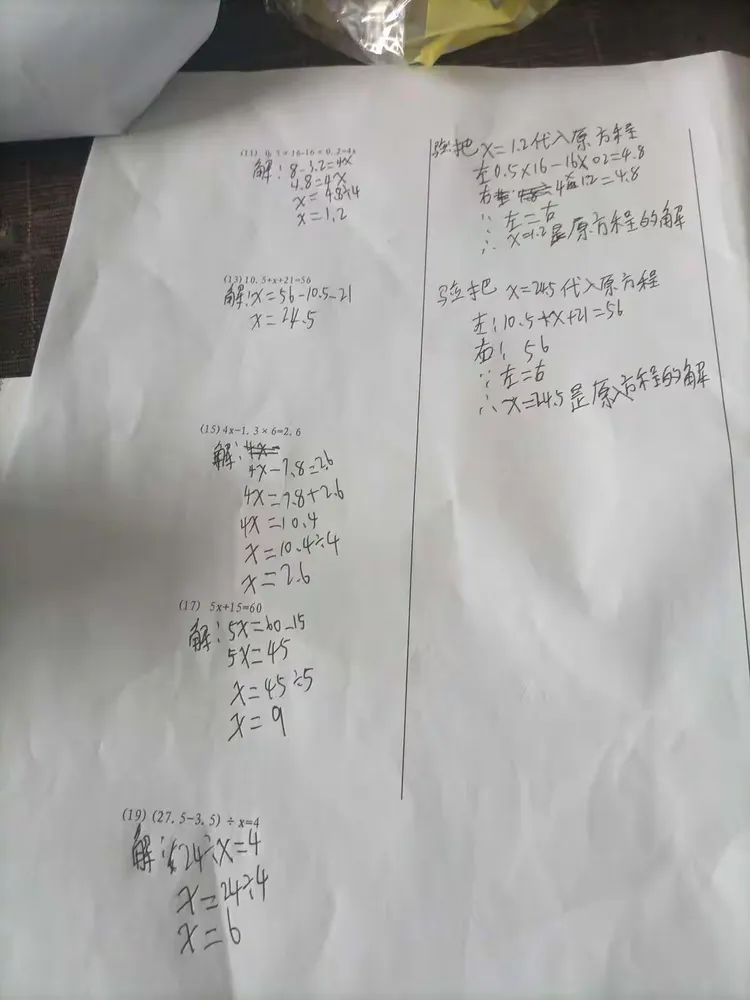 (11) 0.5×16-16×0.2=4x
解：8-3.2=4x
4.8=4x
x=4.8÷4
x=1.2
验把 x=1.2代入原方程
左0.5×16-16×02=4.8
右 4×1.2=4.8
∵左=右
∴x=1.2是原方程的解
(13)10.5+x+21=56
解：x=56-10.5-21
x=24.5
验把 x=24.5代入原方程
左：10.5+x+21=56
右：56
∵左=右
∴x=24.5是原方程的解
(15)4x-1.3×6=2.6
解：4x=
4x-7.8=2.6
4x=7.8+2.6
4x=10.4
x=10.4÷4
x=2.6
(17) 5x+15=60
解：5x=60-15
5x=45
x=45÷5
x=9
(19)(27.5-3.5)÷x=4
解：24÷x=4
x=24÷4
x=6